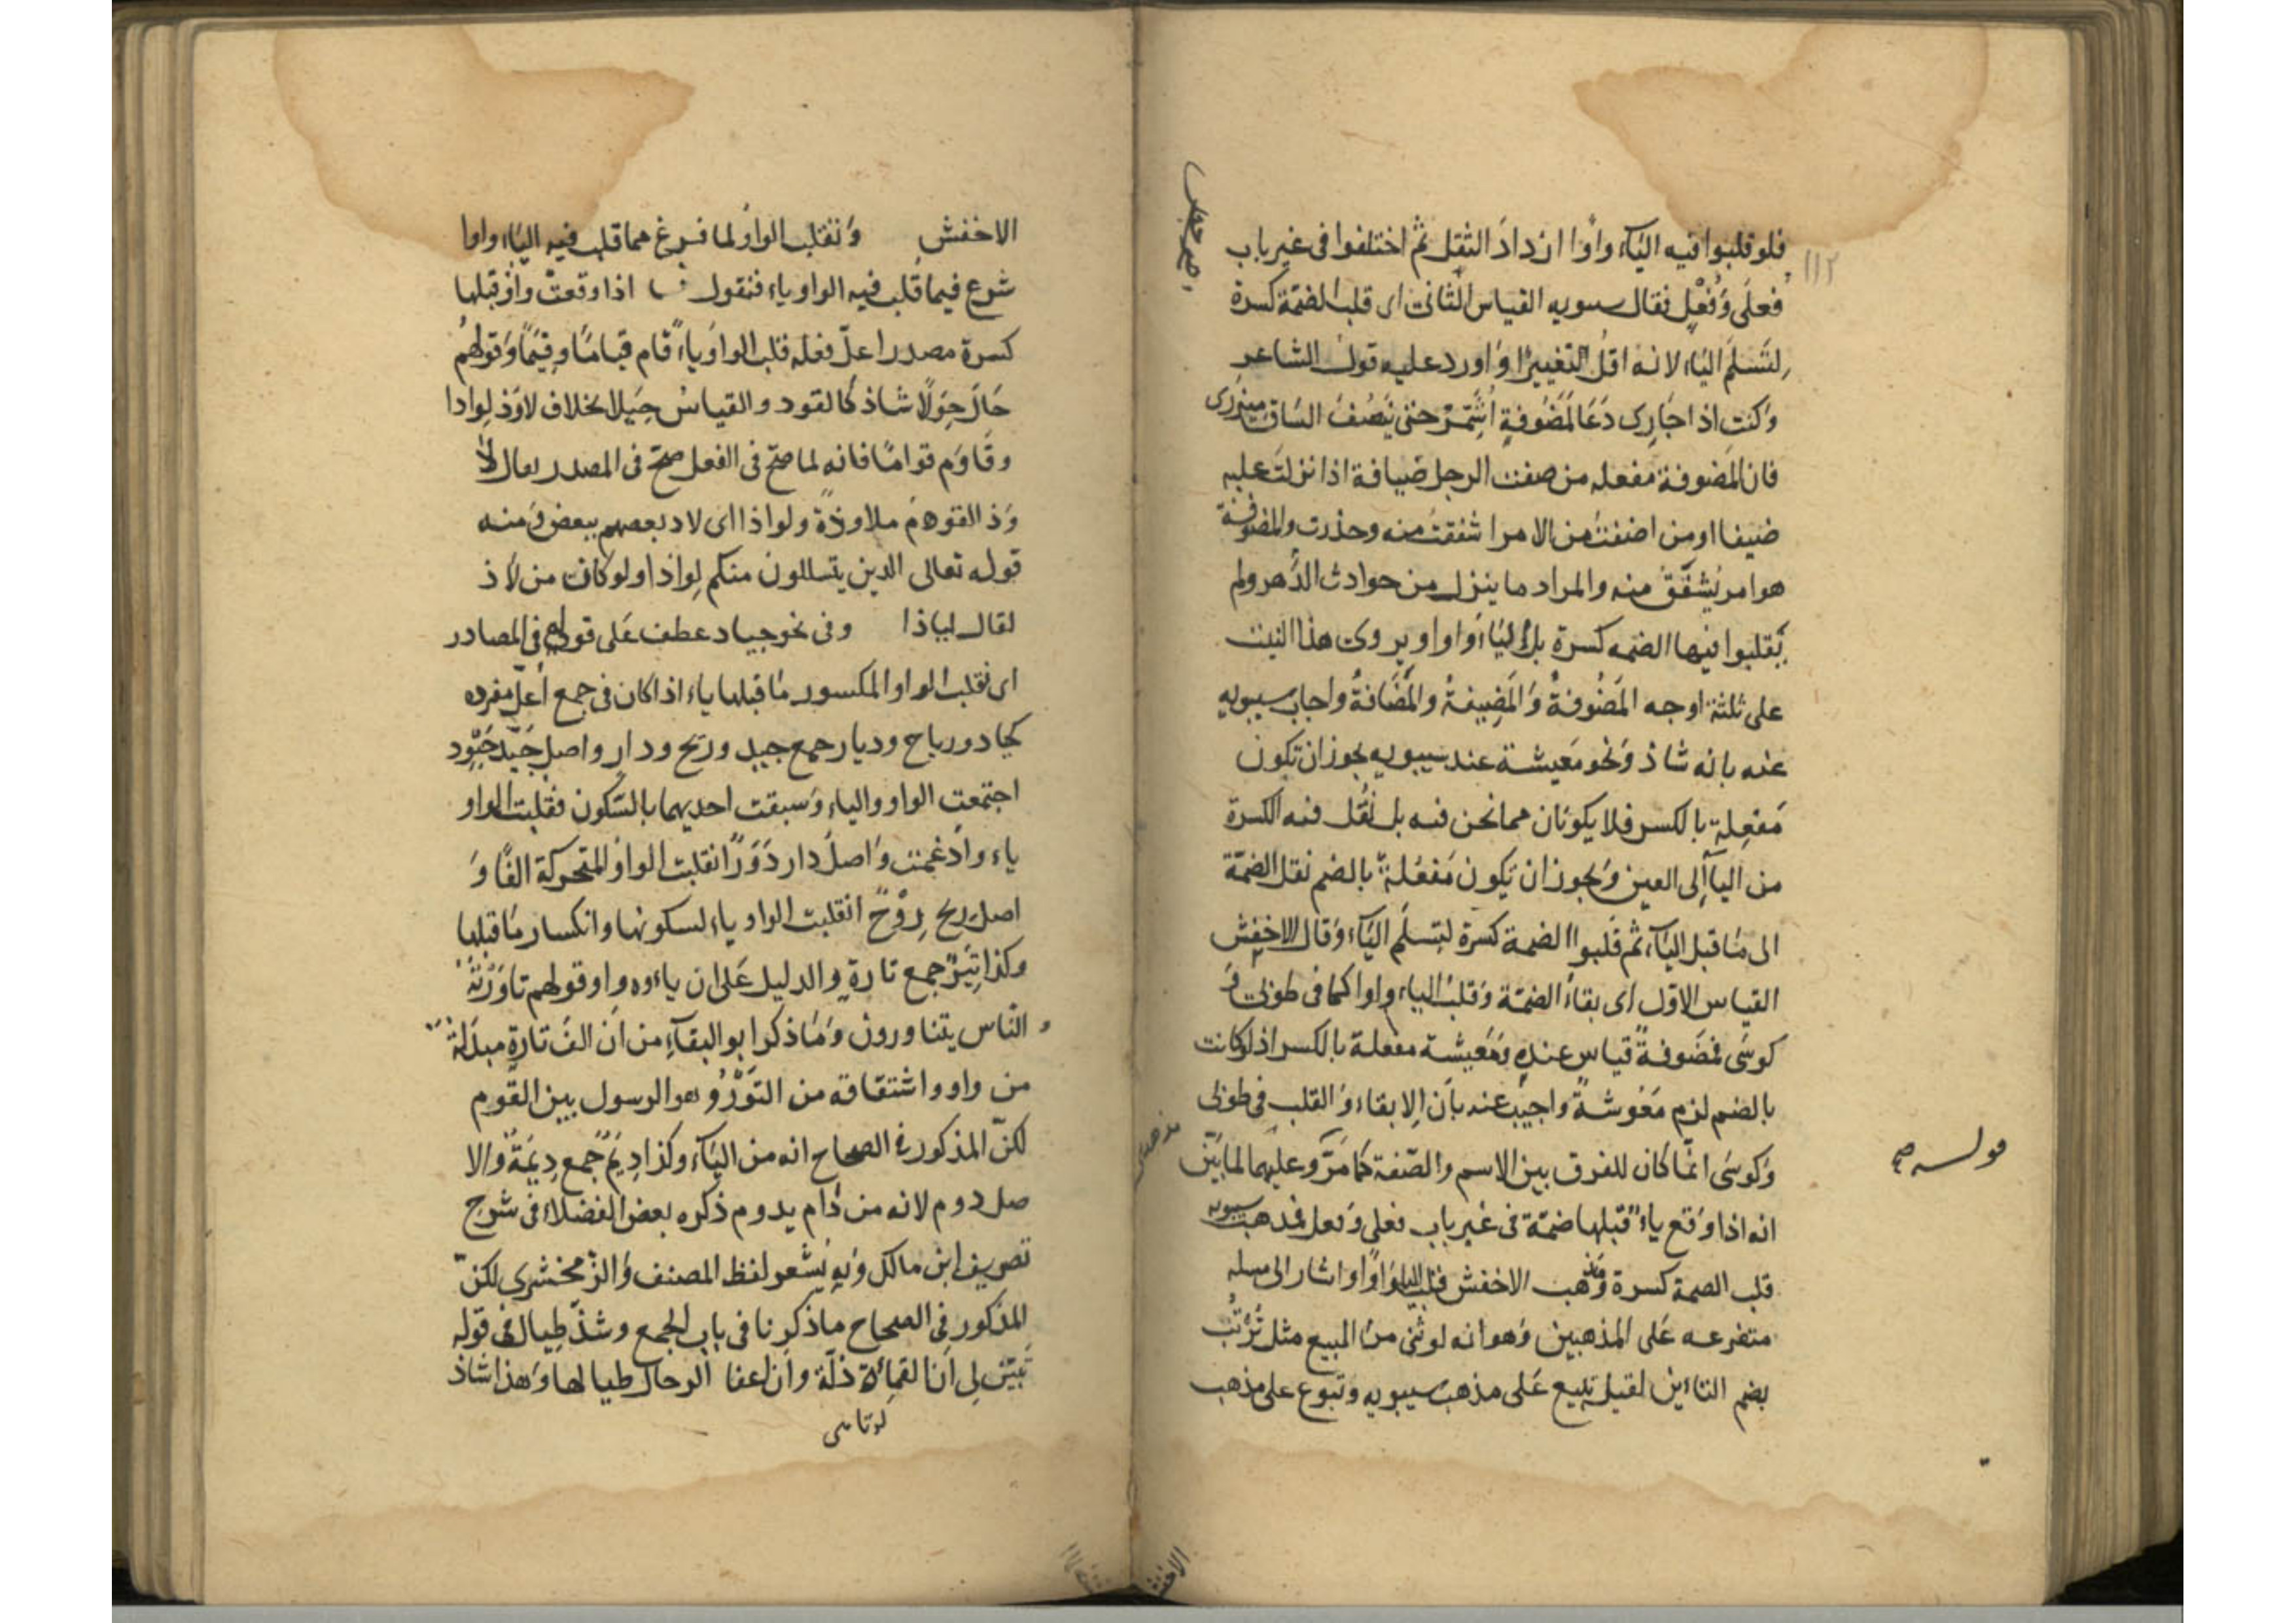 ١١٢
فلو قلبوا فيه الياء واوا ازداد الثقل ثم اختلفوا فى غير باب
فعلى وفعل فقال سيبويه القياس الثانى اى قلب الضمة كسرة
لتسلم الياء لانه اقل التغييرا واورد عليه قول الشاعر
وكنت اذا جارى دعا لمضوفة اشمر حتى ينصف الساق ميزرى
فان المضوفة مفعله من ضفت الرجل ضيافة اذا نزلت عليه
ضيفا او من اضفت من الامر اشفقت منه وحذرت والمضوفة
هو امر يشفق منه والمراد ما ينزل من حوادث الدهر ولم
يقلبوا فيها الضمه كسرة بل الياء واوا ويروى هذا البيت
على ثلثة اوجه المضوفة والمضيفة والمضافة واجاب سيبويه
عنه بانه شاذ ونحو معيشة عند سيبويه يجوز ان تكون
مفعلة بالكسر فلا يكونان مما نحن فيه بل نقل فيه الكسرة
من الياء الى العين ويجوز ان يكون مفعلة بالضم نقل الضمة
الى ما قبل الياء ثم قلبوا الضمة كسرة لتسلم الياء وقال الاخفش
القياس الاول اى بقاء الضمة وقلب الياء واوا كما فى طوبى و
كوسى فمضوفة قياس عنده ومعيشة مفعلة بالكسر اذ لو كانت
بالضم لزم معوشة واجيب عنه بان الابقاء والقلب فى طوبى
وكوسى انما كان للفرق بين الاسم والصفة كما مر وعليهما لما بين
انه اذا وقع ياء قبلها ضمة فى غير باب فعلى وفعل فمذهب سيبويه
قلب الضمة كسرة ومذهب الاخفش قلب الياء واوا اشار الى مسله
متفرعه على المذهبين وهو انه لو بنى من البيع مثل ترتب
بضم التائين لقيل تبيع على مذهب سيبويه وتبوع على مذهب
الاخفش
الاخفش وتقلب الواو لما فرغ مما قلب فيه الياء واوا
شرع فيما قلب فيه الواو ياء فنقول اذا وقعت واو قبلها
كسرة مصدرا اعل فعله قلب الواو ياء قام قياما وقيما وقولهم
حال حولا شاذ كالقود والقياس حيلا بخلاف لاوذ لواذا
وقاوم قواما فانه لما صح فى الفعل صح فى المصدر يقال لا
وذ القوم ملاوذة ولواذا اى لاذ بعضهم ببعض ومنه
قوله تعالى الذين يتسللون منكم لواذا ولو كان من لاذ
لقال لياذا وفى نحو جياد عطف على قوله فى المصادر
اى تقلب الواو المكسور ما قبلها ياء اذا كان فى جمع اعل مفرده
كجياد ورياح وديار جمع جيد وريح ودار واصل جيد جيود
اجتمعت الواو والياء وسبقت احديهما بالسكون فقلبت الواو
ياء وادغمت واصل دار دور انقلبت الواو المتحركة الفا و
اصل ريح روح انقلبت الواو ياء لسكونها وانكسار ما قبلها
وكذا تير جمع تارة والدليل على ان ياءوه واو قولهم تاورته
الناس يتناورون وما ذكر ابو البقاء من ان الف تارة مبدلة
من واو واشتقاقه من التور وهو الرسول بين القوم
لكن المذكور فى الصحاح انه من الياء وكذا ديم جمع ديمة والا
صل دوم لانه من دام يدوم ذكره بعض الفضلاء فى شرح
تصريف ابن مالك وبه يشعر لفظ المصنف والزمخشرى لكن
المذكور فى الصحاح ما ذكرنا فى باب الجمع وشذ طيال فى قوله
تبين لى ان القماءة ذلة وان اعفا الرجال طيالها وهذا شاذ